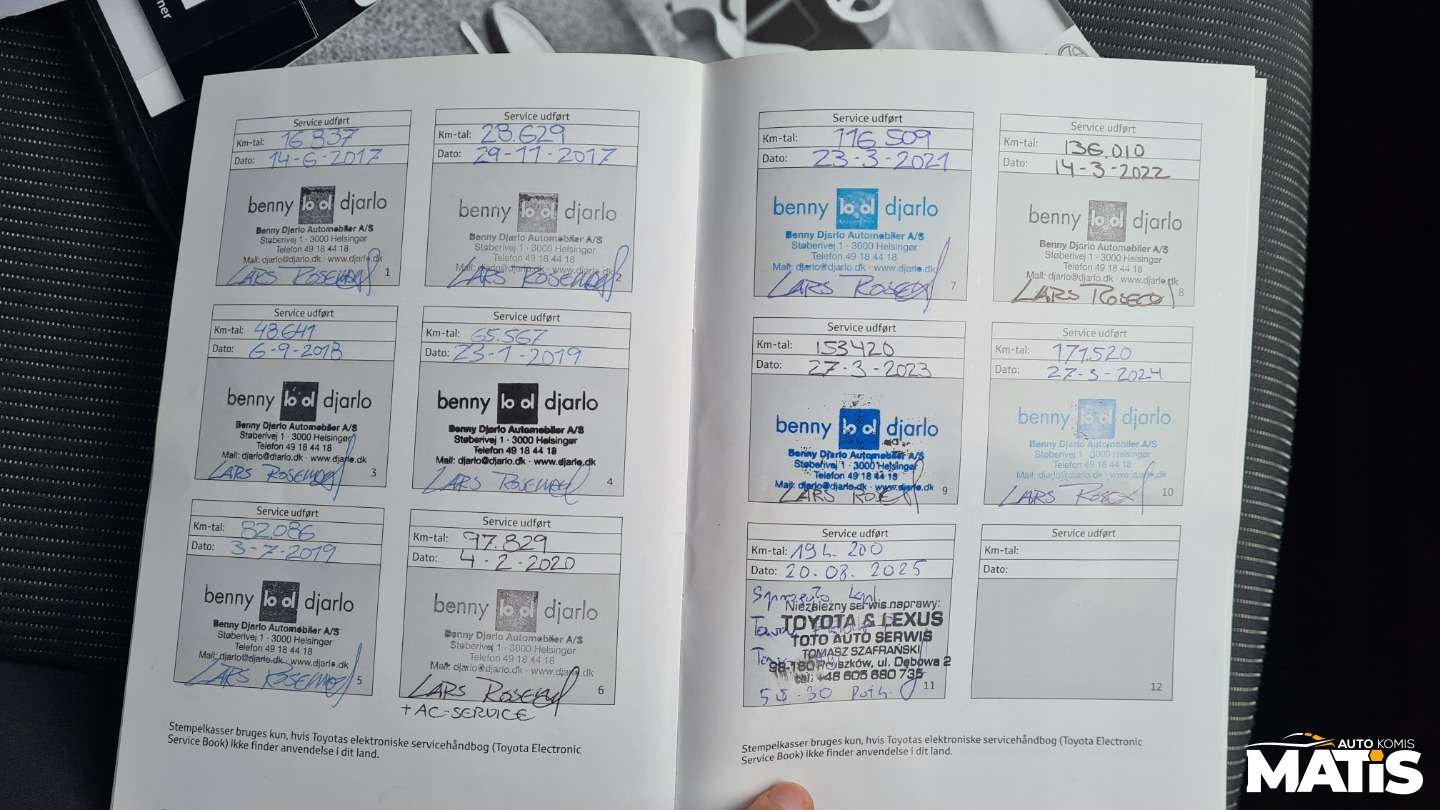 Service udført
Km-tal: 16.337
Dato: 14-6-2017
benny djarlo
Benny Djarlo Automobiler A/S
Støberivej 1 · 3000 Helsingør
Telefon 49 18 44 18
Mail: djarlo@djarlo.dk · www.djarlo.dk
LARS
1
Service udført
Km-tal: 28.629
Dato: 29-11-2017
benny djarlo
Benny Djarlo Automobiler A/S
Støberivej 1 · 3000 Helsingør
Telefon 49 18 44 18
Mail: djarlo@djarlo.dk · www.djarlo.dk
LARS
2
Service udført
Km-tal: 48641
Dato: 6-9-2018
benny djarlo
Benny Djarlo Automobiler A/S
Støberivej 1 · 3000 Helsingør
Telefon 49 18 44 18
Mail: djarlo@djarlo.dk · www.djarlo.dk
LARS
3
Service udført
Km-tal: 65.567
Dato: 23-1-2019
benny djarlo
Benny Djarlo Automobiler A/S
Støberivej 1 · 3000 Helsingør
Telefon 49 18 44 18
Mail: djarlo@djarlo.dk · www.djarlo.dk
LARS
4
Service udført
Km-tal: 82.086
Dato: 3-7-2019
benny djarlo
Benny Djarlo Automobiler A/S
Støberivej 1 · 3000 Helsingør
Telefon 49 18 44 18
Mail: djarlo@djarlo.dk · www.djarlo.dk
LARS
5
Service udført
Km-tal: 97.829
Dato: 4-2-2020
benny djarlo
Benny Djarlo Automobiler A/S
Støberivej 1 · 3000 Helsingør
Telefon 49 18 44 18
Mail: djarlo@djarlo.dk · www.djarlo.dk
LARS
6
+ AC-SERVICE
Stempelkasser bruges kun, hvis Toyotas elektroniske servicehåndbog (Toyota Electronic
Service Book) ikke finder anvendelse i dit land.
Service udført
Km-tal: 116.509
Dato: 23-3-2021
benny djarlo
Benny Djarlo Automobiler A/S
Støberivej 1 · 3000 Helsingør
Telefon 49 18 44 18
Mail: djarlo@djarlo.dk · www.djarlo.dk
LARS
7
Service udført
Km-tal: 136.010
Dato: 14-3-2022
benny djarlo
Benny Djarlo Automobiler A/S
Støberivej 1 · 3000 Helsingør
Telefon 49 18 44 18
Mail: djarlo@djarlo.dk · www.djarlo.dk
LARS
8
Service udført
Km-tal: 153420
Dato: 27-3-2023
benny djarlo
Benny Djarlo Automobiler A/S
Støberivej 1 · 3000 Helsingør
Telefon 49 18 44 18
Mail: djarlo@djarlo.dk · www.djarlo.dk
LARS
9
Service udført
Km-tal: 171.520
Dato: 27-3-2024
benny djarlo
Benny Djarlo Automobiler A/S
Støberivej 1 · 3000 Helsingør
Telefon 49 18 44 18
Mail: djarlo@djarlo.dk · www.djarlo.dk
LARS
10
Service udført
Km-tal: 194. 200
Dato: 20.08.2025
Niezależny serwis naprawy:
TOYOTA & LEXUS
TOTO AUTO SERWIS
TOMASZ SZAFRAŃSKI
ul. Dębowa 2
tel. +48 605 680 735
11
Service udført
Km-tal:
Dato:
12
Stempelkasser bruges kun, hvis Toyotas elektroniske servicehåndbog (Toyota Electronic
Service Book) ikke finder anvendelse i dit land.
AUTO KOMIS
MATIS